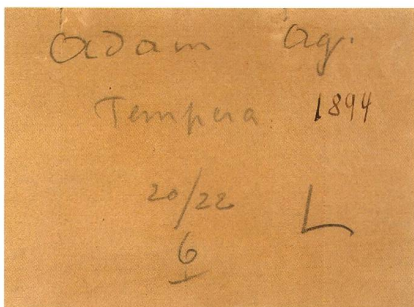 Adam Ag.
Tempera 1894
20/22 L
6